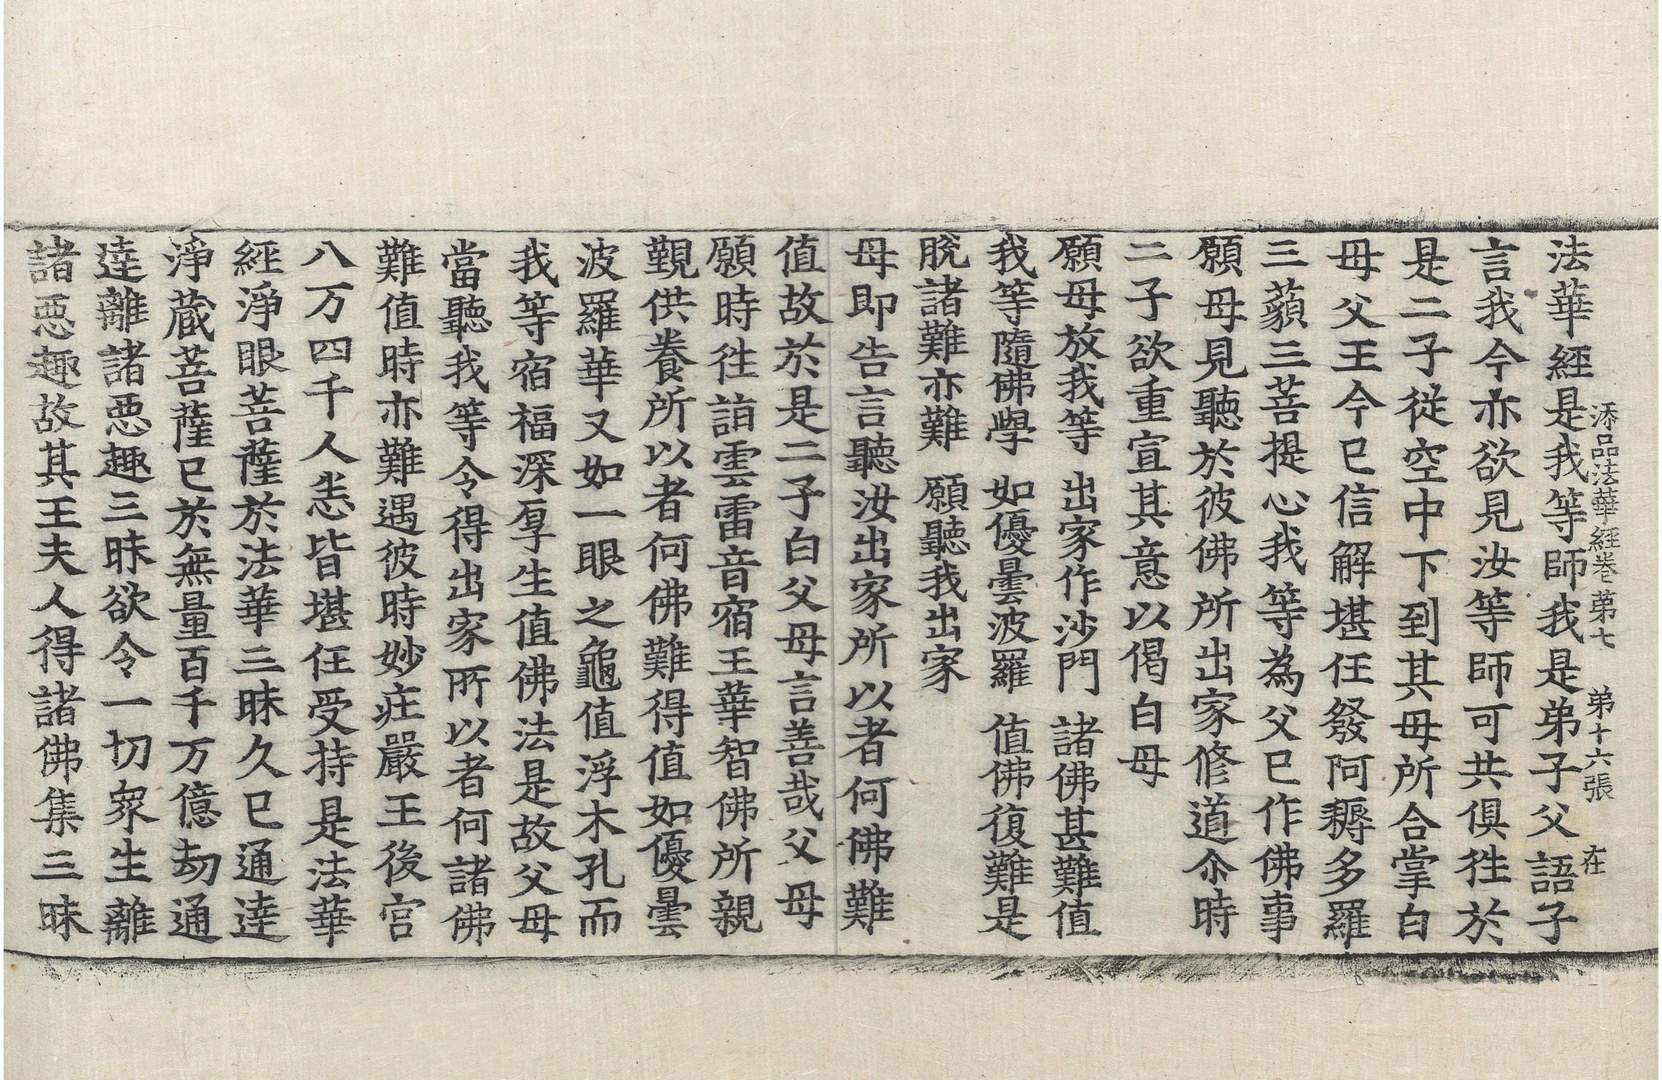 添品法華經卷第七 第十六張 在
法華經是我等師我是弟子父語子
言我今亦欲見汝等師可共俱徃於
是二子從空中下到其母所合掌白
母父王今已信解堪任發阿耨多羅
三藐三菩提心我等為父已作佛事
願母見聽於彼佛所出家修道尒時
二子欲重宣其意以偈白母
願母放我等 出家作沙門 諸佛甚難值
我等隨佛學 如優曇波羅 值佛復難是
脫諸難亦難 願聽我出家
母即告言聽汝出家所以者何佛難
值故於是二子白父母言善哉父母
願時徃詣雲雷音宿王華智佛所親
覲供養所以者何佛難得值如優曇
波羅華又如一眼之龜值浮木孔而
我等宿福深厚生值佛法是故父母
當聽我等令得出家所以者何諸佛
難值時亦難遇彼時妙莊嚴王後宮
八万四千人悉皆堪任受持是法華
經淨眼菩薩於法華三昧久已通達
淨藏菩薩已於無量百千万億劫通
達離諸悪趣三昧欲令一切衆生離
諸悪趣故其王夫人得諸佛集三昧